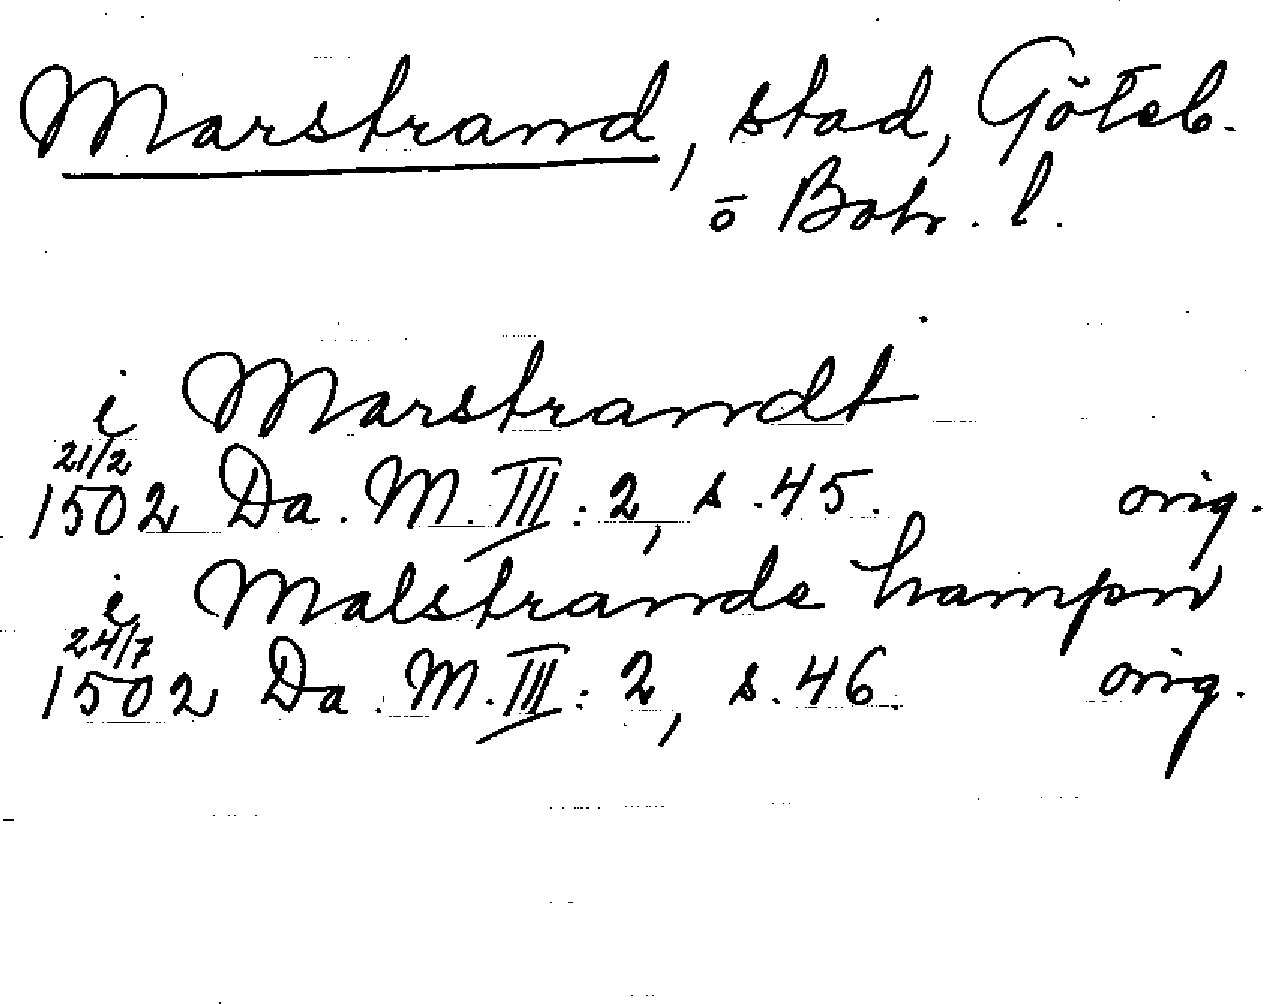 Marstrand, stad, Göteb.
o Boh. l.
i Marstrandt
21/2
1502 Da. M. III: 2, s. 45. orig.
i Malstrande hampn
24/7
1502 Da. M. III: 2, s. 46. orig.